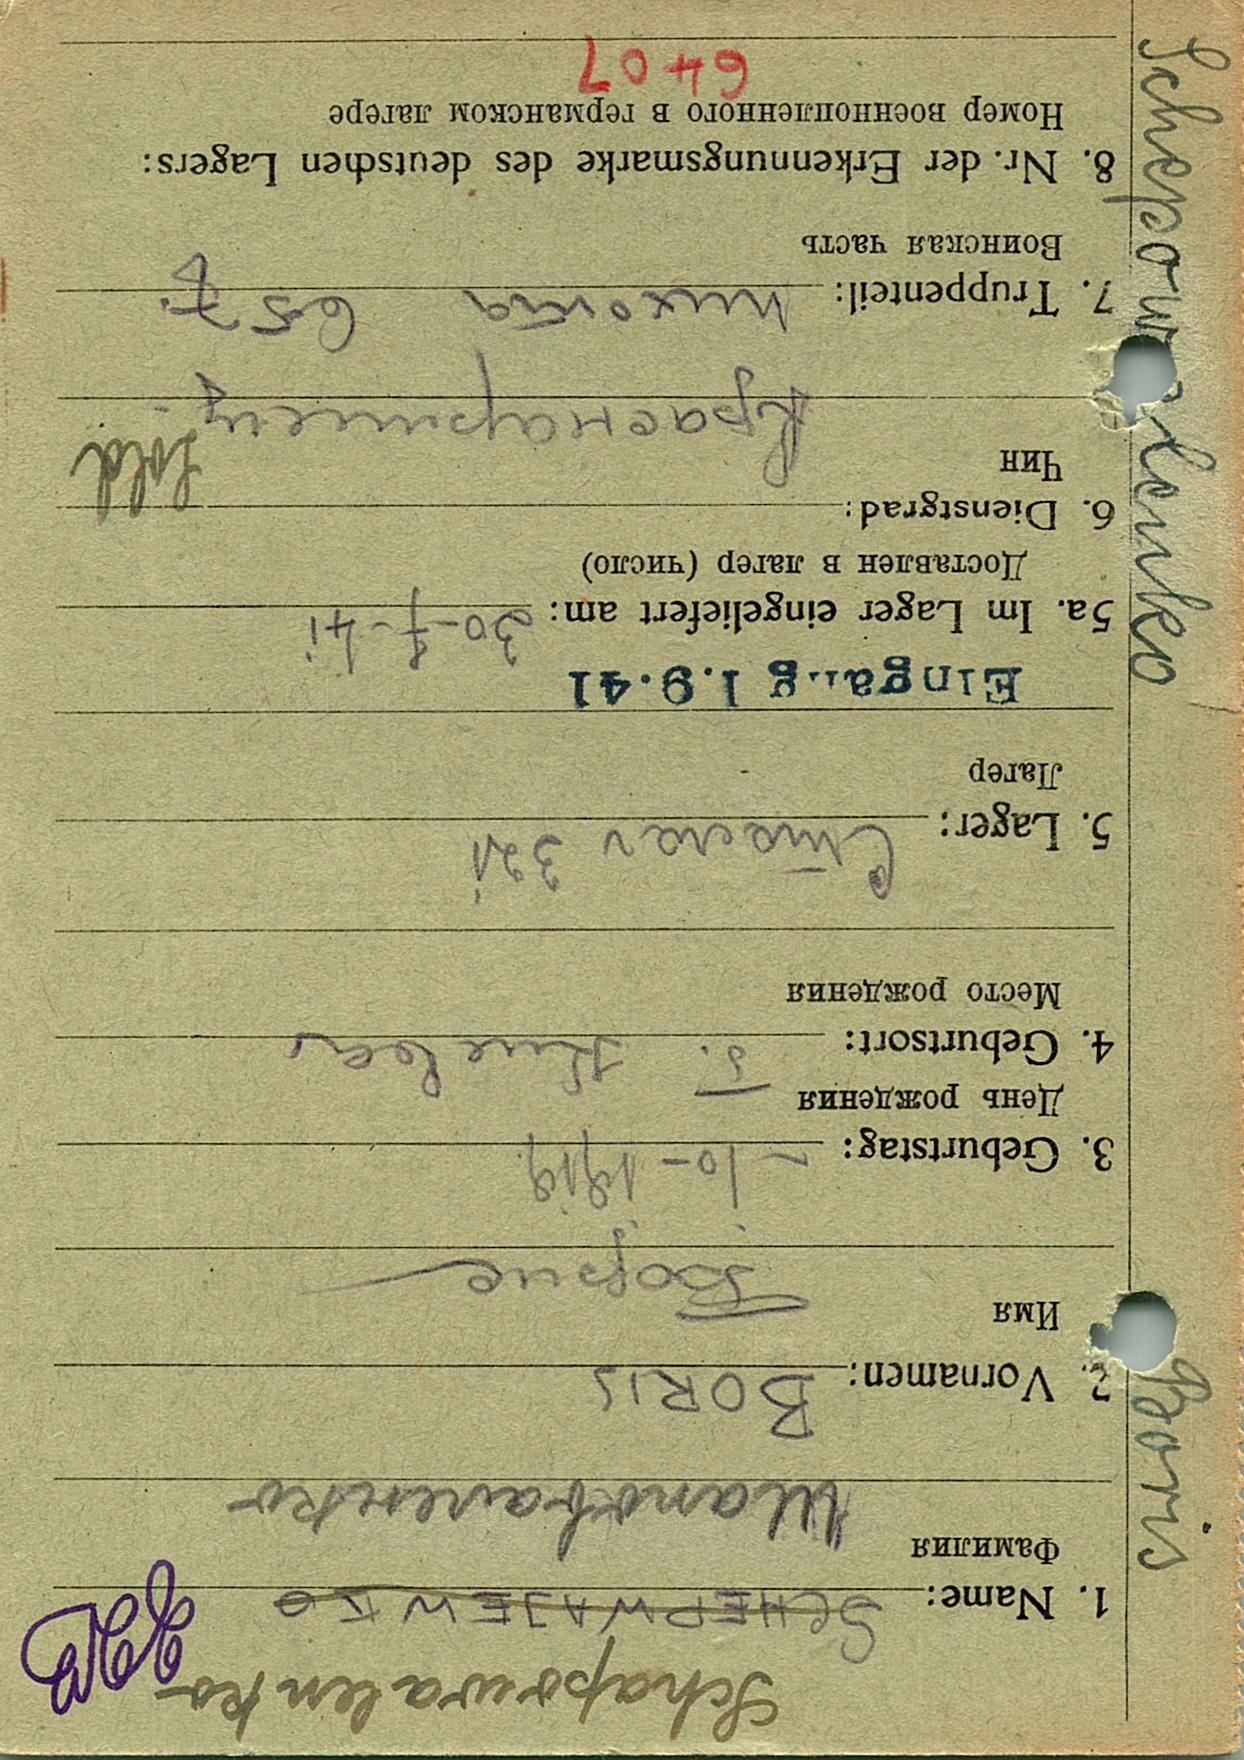 Schapowalenko
1. Name: SCHEPWAJEWKO
Фамилия
Шаповаленко
2. Vornamen: BORIS
Имя
Борис
3. Geburtstag: - 10 - 1919.
День рождения
4. Geburtsort: г.
Место рождения
5. Lager: Сталаг 321
Лагер
Eingang 1.9.41
5a. Im Lager eingeliefert am: 30-7-41
Доставлен в лагер (число)
6. Dienstgrad: Sold
Чин
Красноармеец.
7. Truppenteil: пихота 657.
Воинская часть
8. Nr. der Erkennungsmarke des deutschen Lagers:
Номер военнопленного в германском лагере
6407
Boris